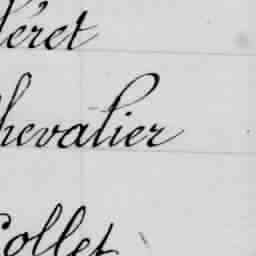 éret
Chevalier
Collet